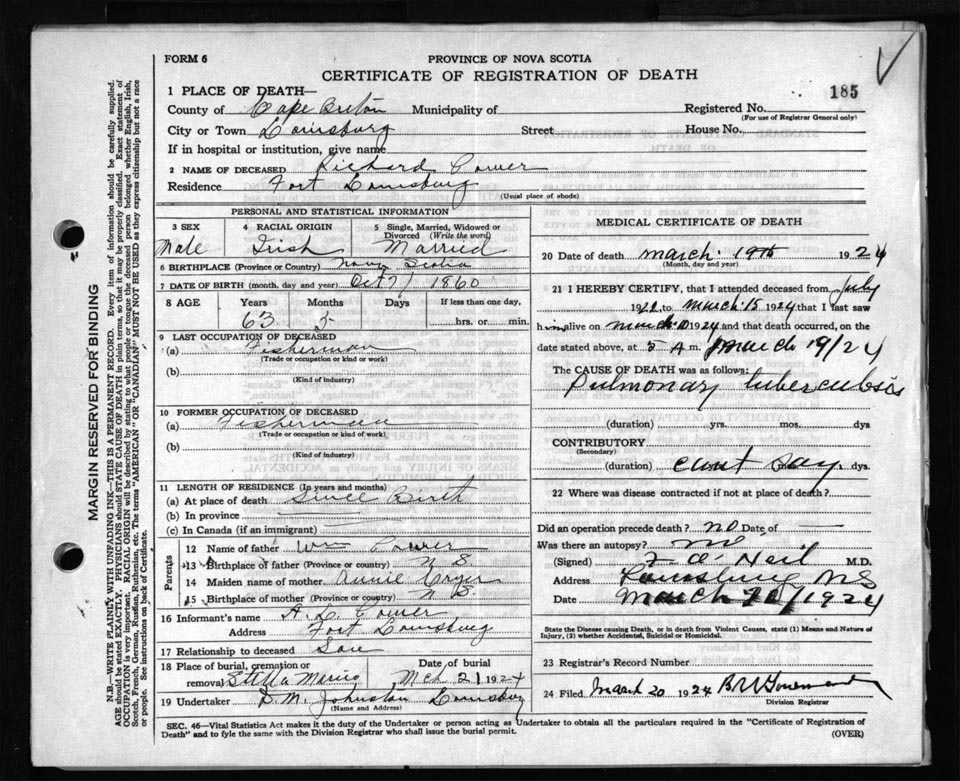 FORM 6
PROVINCE OF NOVA SCOTIA
CERTIFICATE OF REGISTRATION OF DEATH
185
1 PLACE OF DEATH—
County of Cape Breton Municipality of
Registered No.
(For use of Registrar General only)
City or Town Louisburg Street House No.
If in hospital or institution, give name
2 NAME OF DECEASED Richard Power
Residence Fort Louisburg
(Usual place of abode)
PERSONAL AND STATISTICAL INFORMATION
3 SEX 4 RACIAL ORIGIN 5 Single, Married, Widowed or Divorced (Write the word)
Male Irish Married
6 BIRTHPLACE (Province or Country) Nova Scotia
7 DATE OF BIRTH (month, day and year) Oct 7/ 1860
8 AGE Years Months Days If less than one day,
63 5 hrs. or min.
9 LAST OCCUPATION OF DECEASED
(a) Fisherman
(Trade or occupation or kind or work)
(b)
(Kind of industry)
10 FORMER OCCUPATION OF DECEASED
(a) Fisherman
(Trade or occupation or kind of work)
(b)
(Kind of industry)
11 LENGTH OF RESIDENCE (In years and months)
(a) At place of death Since Birth
(b) In province
(c) In Canada (if an immigrant)
Parents
12 Name of father Wm Power
13 Birthplace of father (Province or country) N S
14 Maiden name of mother Annie
15 Birthplace of mother (Province or country) N S
16 Informant's name A. L. Power
Address Fort Louisburg
17 Relationship to deceased Son
18 Place of burial, cremation or removal Stella Maris
Date of burial Mch 21 1924
19 Undertaker D. M. Johnston Louisburg
(Name and Address)
MEDICAL CERTIFICATE OF DEATH
20 Date of death march 19th 1924
(Month, day and year)
21 I HEREBY CERTIFY, that I attended deceased from July
to march 15 1924 that I last saw
him alive on march 1924 and that death occurred, on
date stated above, at 5 A m. march 19/24
The CAUSE OF DEATH was as follows:
Pulmonary tuberculosis
(duration) yrs. mos. dys
CONTRIBUTORY
(Secondary)
(duration) can't say dys.
22 Where was disease contracted if not at place of death?
Did an operation precede death? no Date of
Was there an autopsy? no
(Signed) O'Neil M.D.
Address Louisburg NS
Date March 1924
State the Disease causing Death, or in death from Violent Causes, state (1) Means and Nature of Injury, (2) whether Accidental, Suicidal or Homicidal.
23 Registrar's Record Number
24 Filed march 20 1924
Division Registrar
SEC. 46—Vital Statistics Act makes it the duty of the Undertaker or person acting as Undertaker to obtain all the particulars required in the "Certificate of Registration of
Death" and to fyle the same with the Division Registrar who shall issue the burial permit.
(OVER)
MARGIN RESERVED FOR BINDING
N.B.—WRITE PLAINLY, WITH UNFADING INK—THIS IS A PERMANENT RECORD. Every item of information should be carefully supplied.
AGE should be stated EXACTLY. PHYSICIANS should STATE CAUSE OF DEATH in plain terms, so that it may be properly classified. Exact statement of
OCCUPATION is very important. RACIAL ORIGIN will be described by stating to what people or tongue the deceased person belonged whether English, Irish,
Scotch, French, German, Russian, Ruthenian, etc. The terms "AMERICAN" or "CANADIAN" MUST NOT BE USED as they express citizenship but not a race
or people. See instructions on back of Certificate.